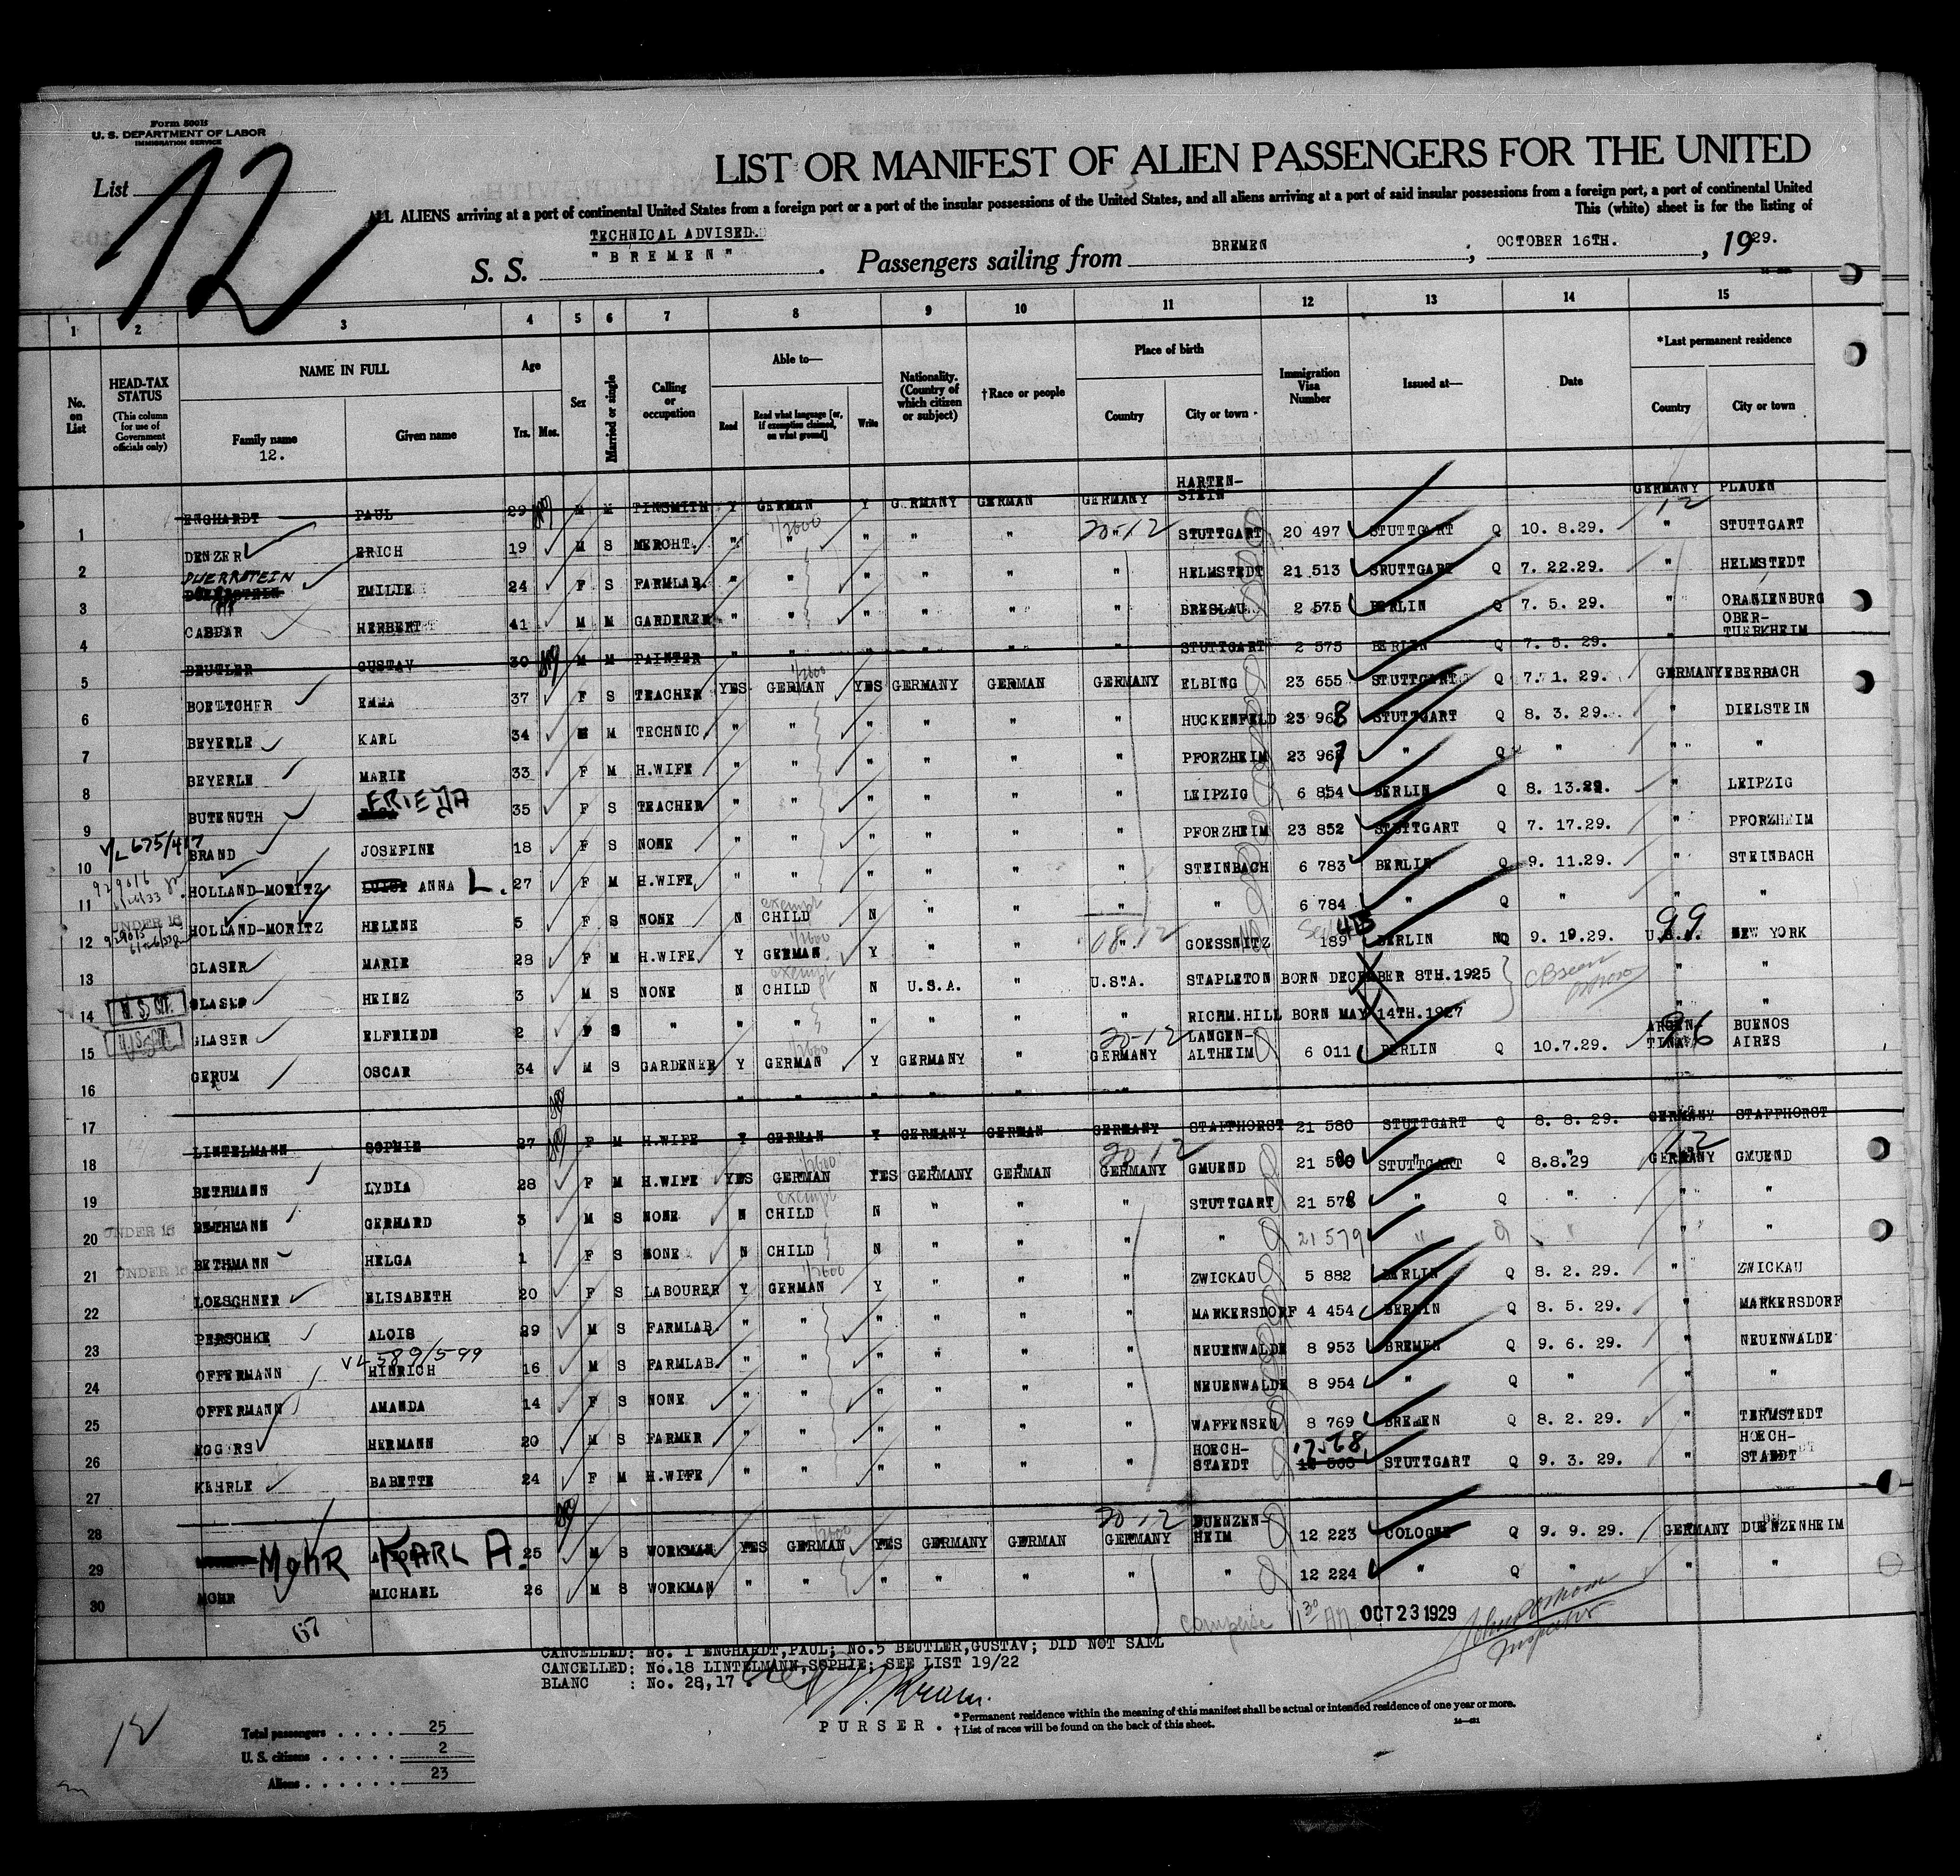 Form 500B
U. S. DEPARTMENT OF LABOR
IMMIGRATION SERVICE
List 12
LIST OR MANIFEST OF ALIEN PASSENGERS FOR THE UNITED
ALL ALIENS arriving at a port of continental United States from a foreign port or a port of the insular possessions of the United States, and all aliens arriving at a port of said insular possessions from a foreign port, a port of continental United
This (white) sheet is for the listing of
TECHNICAL ADVISED.
S. S. "BREMEN" . Passengers sailing from BREMEN ; OCTOBER 16TH. , 1929.
1 2 3 4 5 6 7 8 9 10 11 12 13 14 15
No. on List
HEAD-TAX STATUS (This column for use of Government officials only)
NAME IN FULL
Family name
12.
Given name
Age
Yrs. Mos.
Sex
Married or single
Calling or occupation
Able to—
Read
Read what language [or, if exemption claimed, on what ground]
Write
Nationality. (Country of which citizen or subject)
†Race or people
Place of birth
Country
City or town
Immigration Visa Number
Issued at—
Date
*Last permanent residence
Country
City or town
1 ENGHARDT PAUL 29 M M TINSMITH Y GERMAN Y G.RMANY GERMAN GERMANY HARTEN-STEIN GERMANY PLAUEN
2 DENZER ERICH 19 M S MERCHT. " " " " " " STUTTGART 20 497 STUTTGART Q 10. 8.29. " STUTTGART
3 DUERRSTEIN EMILIE 24 F S FARMLAB. " " " " " " HELMSTEDT 21 513 STUTTGART Q 7. 22.29. " HELMSTEDT
4 CASPAR HERBERT 41 M M GARDENER " " " " " " BRESLAU 2 575 BERLIN Q 7. 5. 29. " ORANIENBURG
5 BEUTLER GUSTAV 30 M M PAINTER " " " " " " STUTTGART 2 575 BERLIN Q 7. 5. 29. " OBER-TUERKHEIM
6 BOETTCHER EMMA 37 F S TEACHER YES GERMAN YES GERMANY GERMAN GERMANY ELBING 23 655 STUTTGART Q 7. 1. 29. GERMANY EBERBACH
7 BEYERLE KARL 34 M M TECHNIC. " " " " " " HUCKENFELD 23 968 STUTTGART Q 8. 3. 29. " DIELSTEIN
8 BEYERLE MARIE 33 F M H.WIFE " " " " " " PFORZHEIM 23 967 " Q " " "
9 BUTENUTH FRIEDA 35 F S TEACHER " " " " " " LEIPZIG 6 854 BERLIN Q 8. 13.29. " LEIPZIG
10 V/L 675/417 BRAND JOSEFINE 18 F S NONE " " " " " " PFORZHEIM 23 852 STUTTGART Q 7. 17.29. " PFORZHEIM
11 HOLLAND-MORITZ ANNA L. 27 F M H.WIFE " " " " " " STEINBACH 6 783 BERLIN Q 9. 11.29. " STEINBACH
12 UNDER 16 HOLLAND-MORITZ HELENE 5 F S NONE N exempt CHILD N " " " " 6 784 " Q " " "
13 GLASER MARIE 28 F M H.WIFE Y GERMAN Y " " " GOESSNITZ 189 BERLIN NQ 9. 19.29. U.S.A. NEW YORK
14 GLASER HEINZ 3 M S NONE N exempt CHILD N U.S.A. " U.S.A. STAPLETON BORN DECEMBER 8TH.1925 " "
15 GLASER ELFRIEDE 2 F S " " " " " " " RICHM.HILL BORN MAY 14TH.1927 " "
16 GERUM OSCAR 34 M S GARDENER Y GERMAN Y GERMANY " GERMANY LANGEN-ALTHEIM 6 011 BERLIN Q 10.7.29. ARGEN-TINA BUENOS AIRES
17 " " " " " "
18 LINTELMANN SOPHIE 27 F M H.WIFE Y GERMAN Y GERMANY GERMAN GERMANY STAFFHORST 21 580 STUTTGART Q 8. 8. 29. GERMANY STAFFHORST
19 BETHMANN LYDIA 28 F M H.WIFE YES GERMAN YES GERMANY GERMAN GERMANY GMUEND 21 580 STUTTGART Q 8.8.29 GERMANY GMUEND
20 UNDER 16 BETHMANN GERHARD 3 M S NONE N exempt CHILD N " " " STUTTGART 21 578 " Q " " "
21 UNDER 16 BETHMANN HELGA 1 F S NONE N CHILD N " " " " 21 579 " Q " " "
22 LOESCHNER ELISABETH 20 F S LABOURER Y GERMAN Y " " " ZWICKAU 5 882 BERLIN Q 8. 2. 29. " ZWICKAU
23 PERSCHKE ALOIS 29 M S FARMLAB. " " " " " " MARKERSDORF 4 454 BERLIN Q 8. 5. 29. " MARKERSDORF
24 OFFERMANN HINRICH 16 M S FARMLAB. " " " " " " NEUENWALDE 8 953 BREMEN Q 9. 6. 29. " NEUENWALDE
25 OFFERMANN AMANDA 14 F S NONE " " " " " " NEUENWALDE 8 954 " Q " " "
26 EGGERS HERMANN 20 M S FARMER " " " " " " WAFFENSEN 8 769 BREMEN Q 8. 2. 29. " TERMSTEDT
27 KEHRLE BABETTE 24 F M H.WIFE " " " " " " HOECH-STAEDT 17568 STUTTGART Q 9. 3. 29. " HOECH-STAEDT
28
29 MOHR KARL A. 25 M S WORKMAN YES GERMAN YES GERMANY GERMAN GERMANY DUENZEN-HEIM 12 223 COLOGNE Q 9. 9. 29. GERMANY DUENZENHEIM
30 MOHR MICHAEL 26 M S WORKMAN " " " " " " " 12 224 " Q " " "
67
complete 11 30 AM OCT 23 1929
CANCELLED: No. 1 ENGHARDT,PAUL; No.5 BEUTLER,GUSTAV; DID NOT SAIL
CANCELLED: No.18 LINTELMANN,SOPHIE; SEE LIST 19/22
BLANC : No. 28,17.
PURSER.
* Permanent residence within the meaning of this manifest shall be actual or intended residence of one year or more.
† List of races will be found on the back of this sheet.
12
Total passengers . . . . 25
U. S. citizens . . . . . 2
Aliens . . . . . . 23